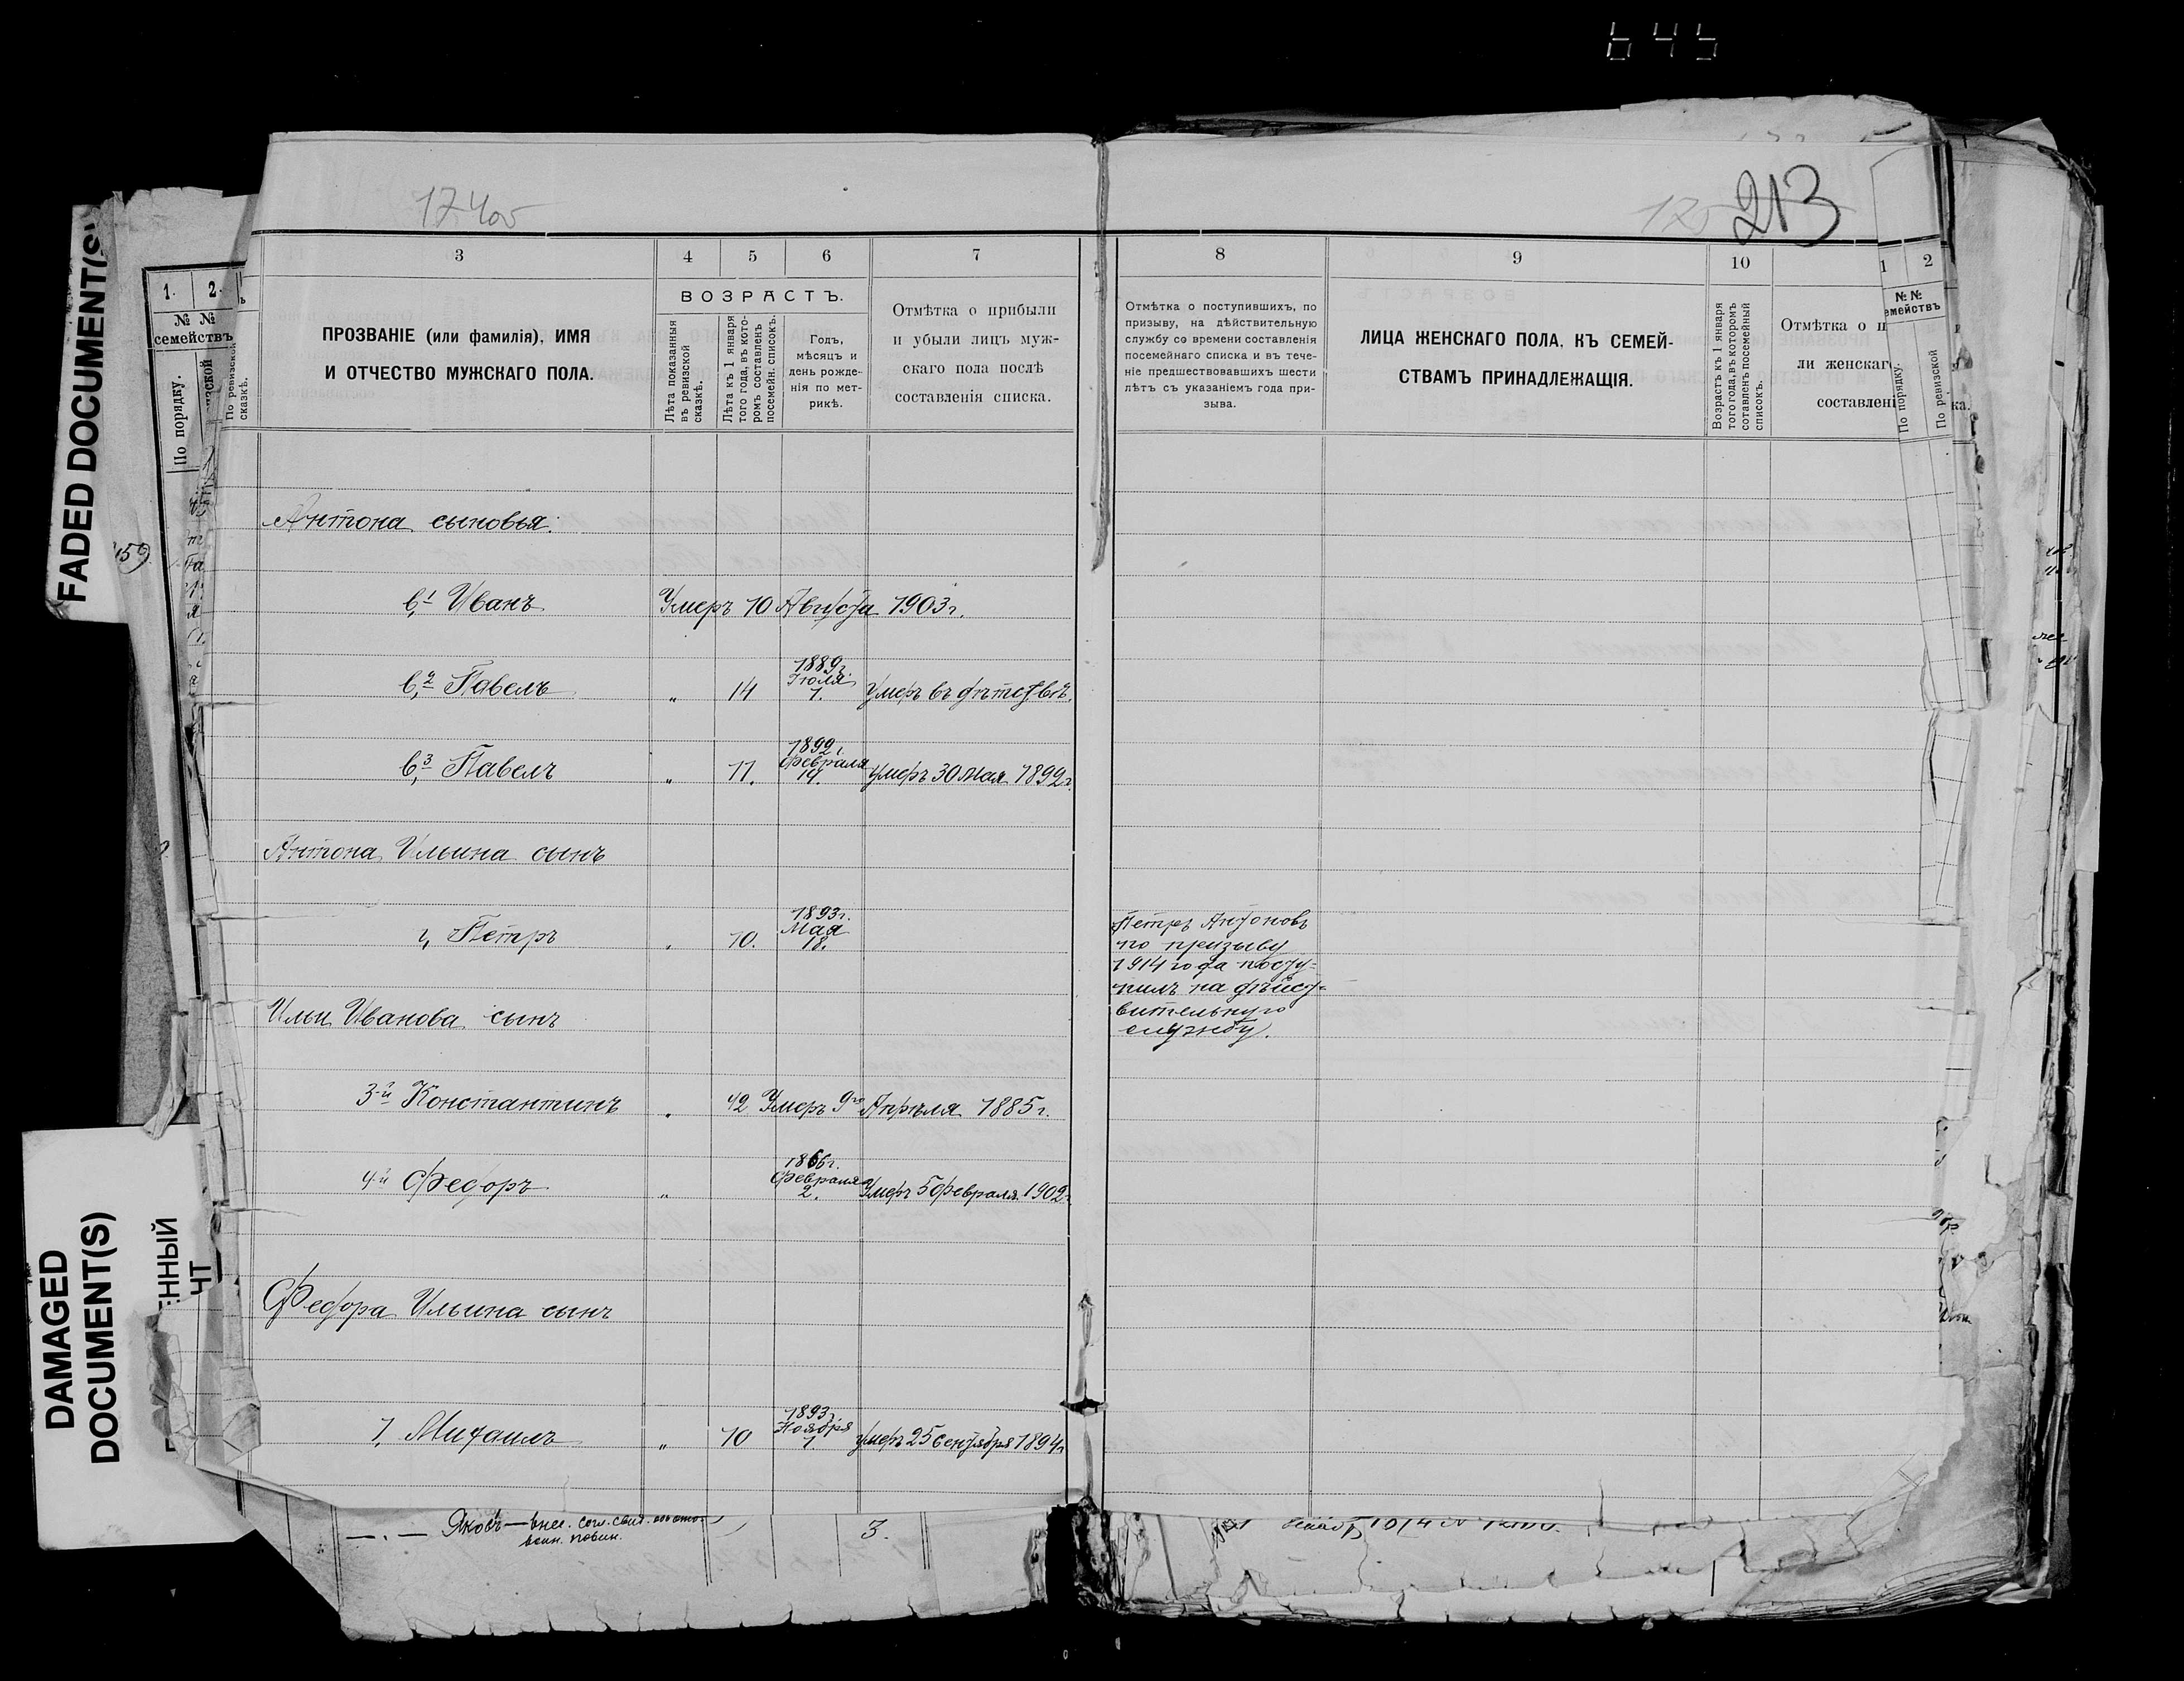 645
FADED DOCUMENT(S)
DAMAGED
DOCUMENT(S)
ЕННЫЙ
174об
213
1. 2.
№ №
семействъ
По порядку.
По ревизской
сказкѣ.
159
3 4 5 6 7
ПРОЗВАНІЕ (или фамилія), ИМЯ
И ОТЧЕСТВО МУЖСКАГО ПОЛА.
ВОЗРАСТЪ.
Лѣта показанныя
въ ревизской
сказкѣ.
Лѣта къ 1 января
того года, въ кото-
ромъ составленъ
посемейн. списокъ.
Годъ,
мѣсяцъ и
день рожде-
нія по мет-
рикѣ.
Отмѣтка о прибыли
и убыли лицъ муж-
скаго пола послѣ
составленія списка.
Антона сыновья:
в,1 Иванъ Умеръ 10 Августа 1903 г.
в,2 Павелъ " 14 1889 г. Іюля 1. Умеръ въ дѣтствѣ.
в,3 Павелъ " 11. 1892 г. Февраля 14. Умеръ 30 Мая 1892 г.
Антона Ильина сынъ
г, Петръ " 10. 1893 г. Мая 18.
Ильи Иванова сынъ
3-й Константинъ " 42 Умеръ 9го Апрѣля 1885 г.
4-й Федоръ " 1866 г. Февраля 2. Умеръ 5 Февраля 1902 г.
Федора Ильина сынъ
1, Михаилъ " 10 1893 г. Ноября 1. Умеръ 25 Сентября 1894 г.
Яковъ
воин. повин.
3.
8 9 10
Отмѣтка о поступившихъ, по
призыву, на дѣйствительную
службу со времени составленія
посемейнаго списка и въ тече-
ніе предшествовавшихъ шести
лѣтъ съ указаніемъ года при-
зыва.
ЛИЦА ЖЕНСКАГО ПОЛА, КЪ СЕМЕЙ-
СТВАМЪ ПРИНАДЛЕЖАЩІЯ.
Возрастъ къ 1 января
того года, въ которомъ
составленъ посемейный
списокъ.
Отмѣтка о п
ли женскаг
составлені
1 2
№ №
емействъ
По порядку.
По ревизской
ка.
Петръ Антоновъ
по призыву
1914 года посту=
пилъ на дѣйст=
вительную
службу.